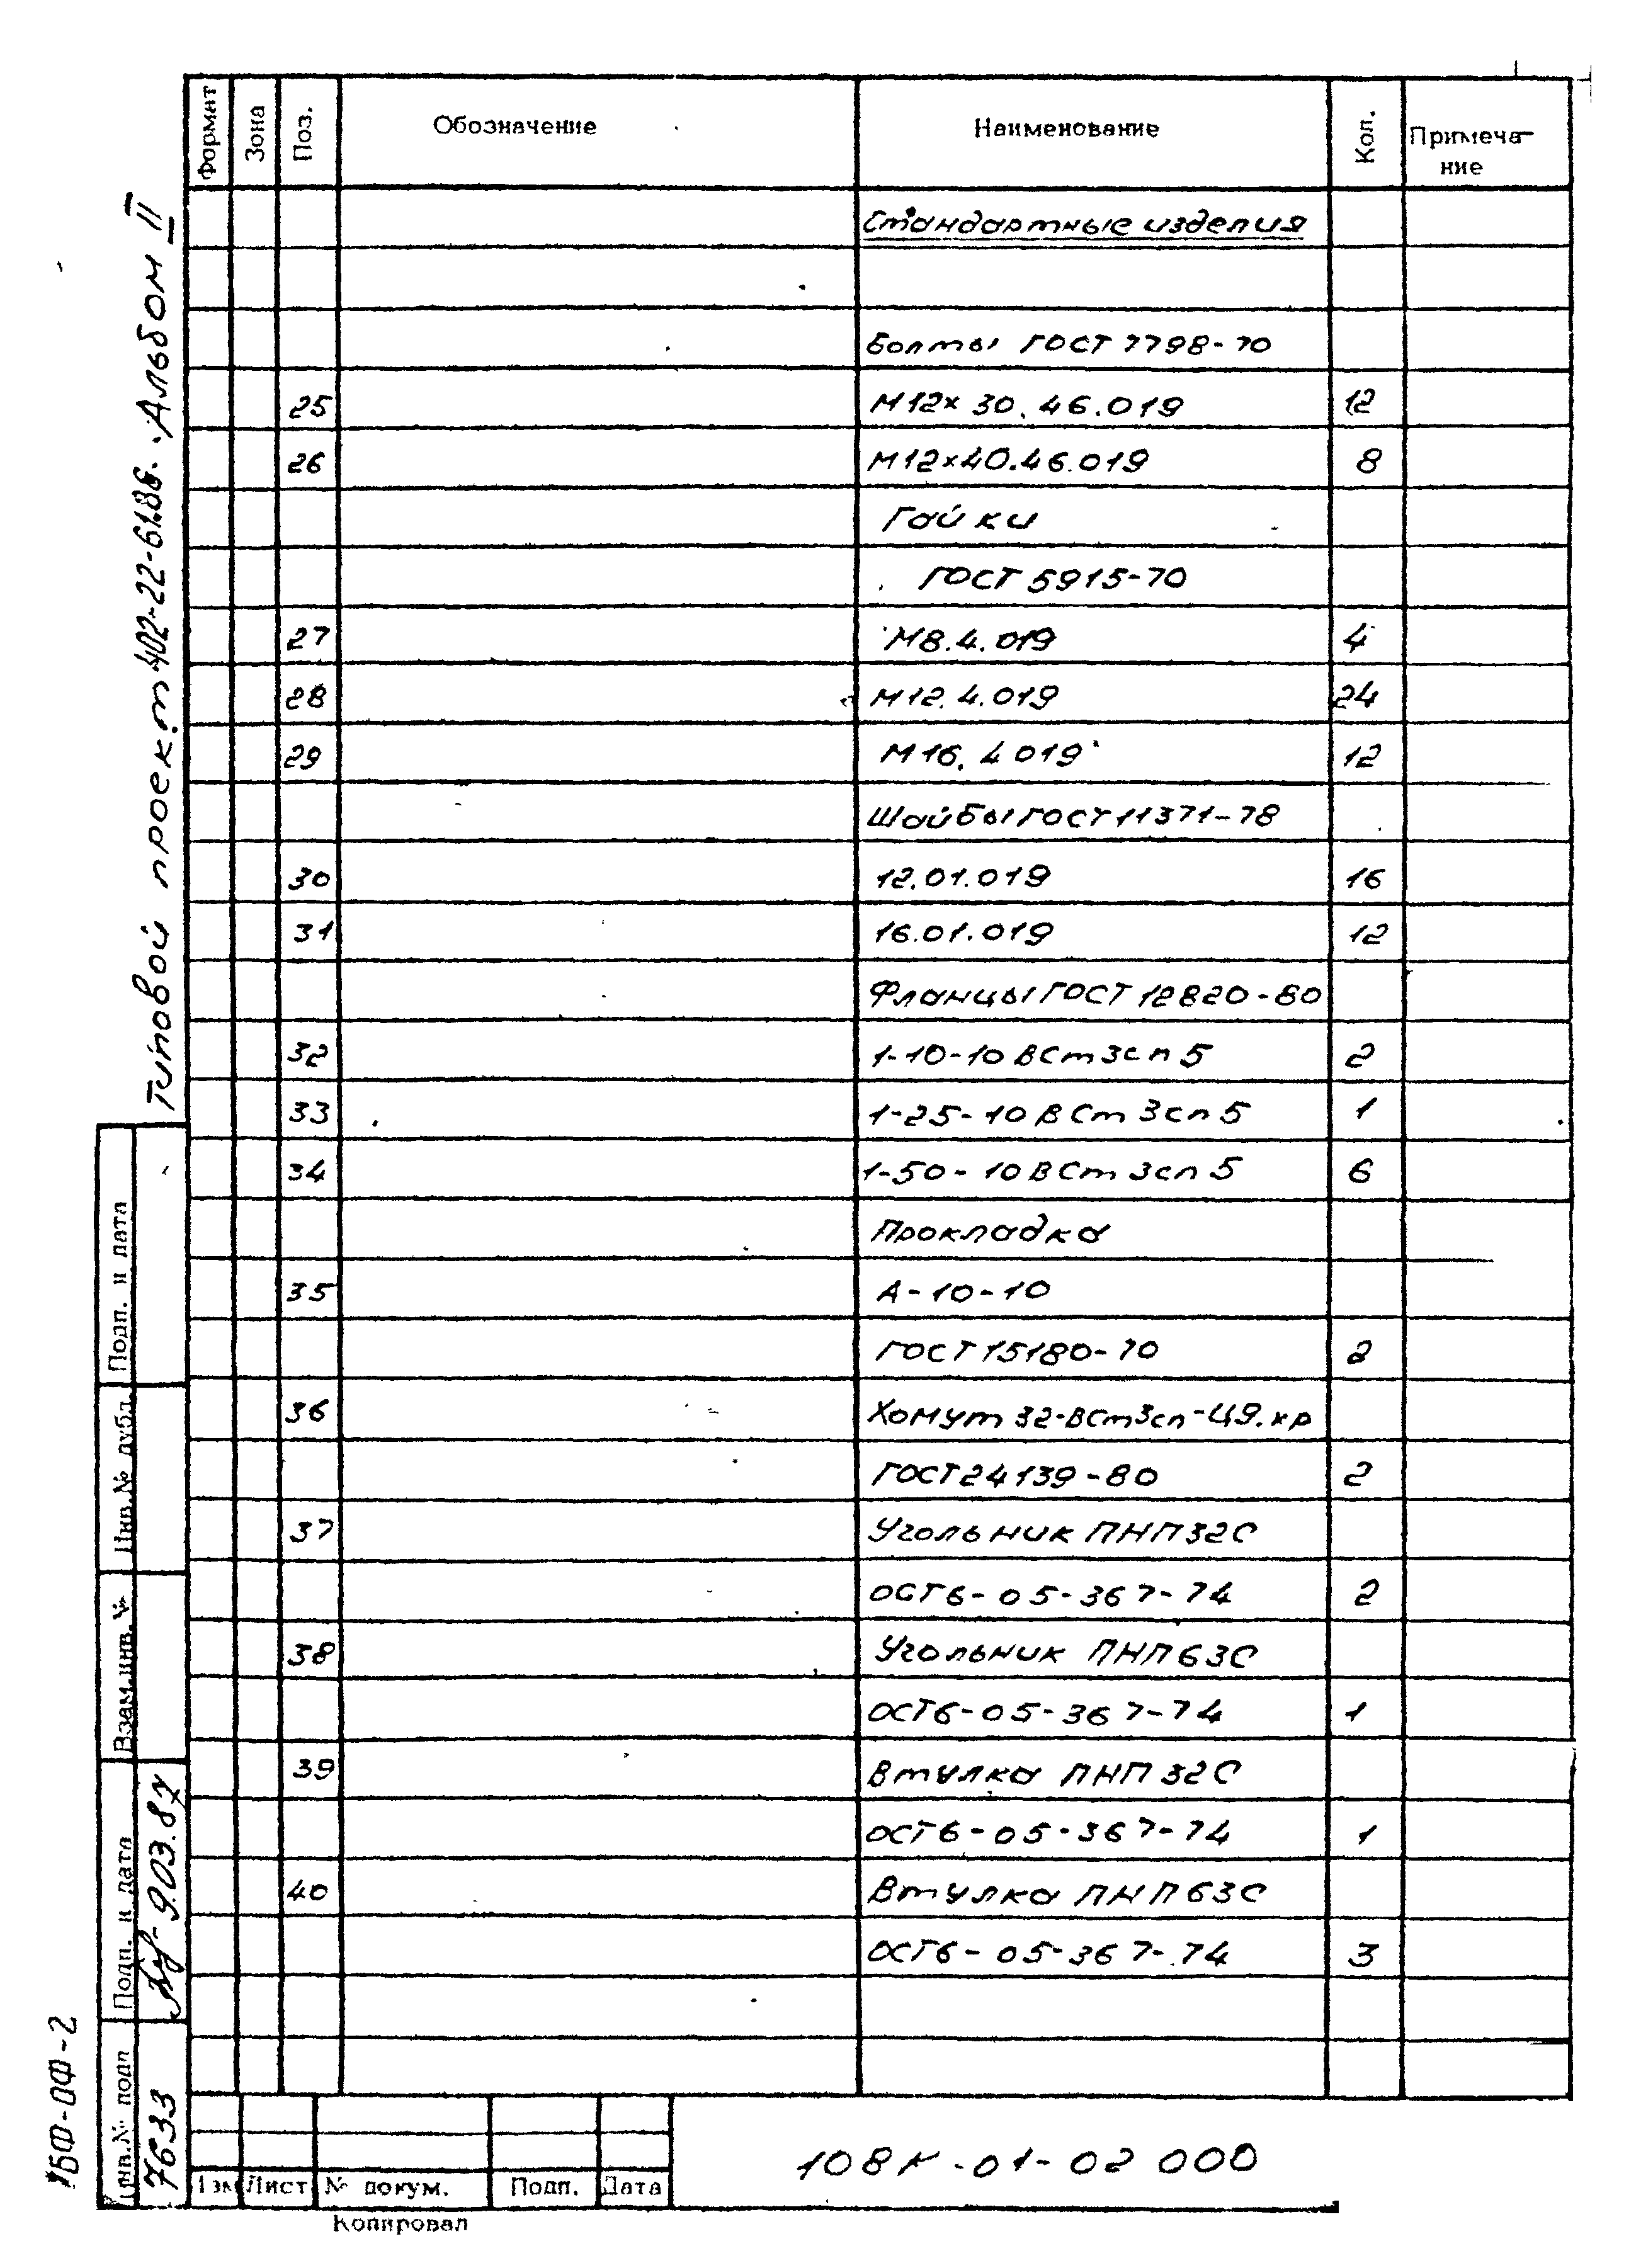 Формат Зона Поз. Обозначение Наименование Кол. Примеча-
ние
Стандартные изделия
Болты ГОСТ 7798-70
25 М12×30.46.019 12
26 М12×40.46.019 8
Гайки
ГОСТ 5915-70
27 М8.4.019 4
28 М12.4.019 24
29 М16.4 019 12
Шайбы ГОСТ 11371-78
30 12.01.019 16
31 16.01.019 12
Фланцы ГОСТ 12820-80
32 1-10-10 ВСт3сп5 2
33 1-25-10 ВСт3сп5 1
34 1-50-10 ВСт3сп5 6
Прокладка
35 А-10-10
ГОСТ 15180-70 2
36 Хомут 32-ВСт3сп-Ц9.хр
ГОСТ 24139-80 2
37 Угольник ПНП32С
ОСТ6-05-367-74 2
38 Угольник ПНП63С
ОСТ6-05-367-74 1
39 Втулка ПНП32С
ОСТ6-05-367-74 1
40 Втулка ПНП63С
ОСТ6-05-367-74 3
Типовой проект 402-22-61.86. Альбом II
Подп. и дата
Инв.№ дубл.
Взам.инв. №
Подп. и дата 9.03.87
Инв.№ подп 7633
Изм Лист № докум. Подп. Дата
108К-01-02 000
Копировал